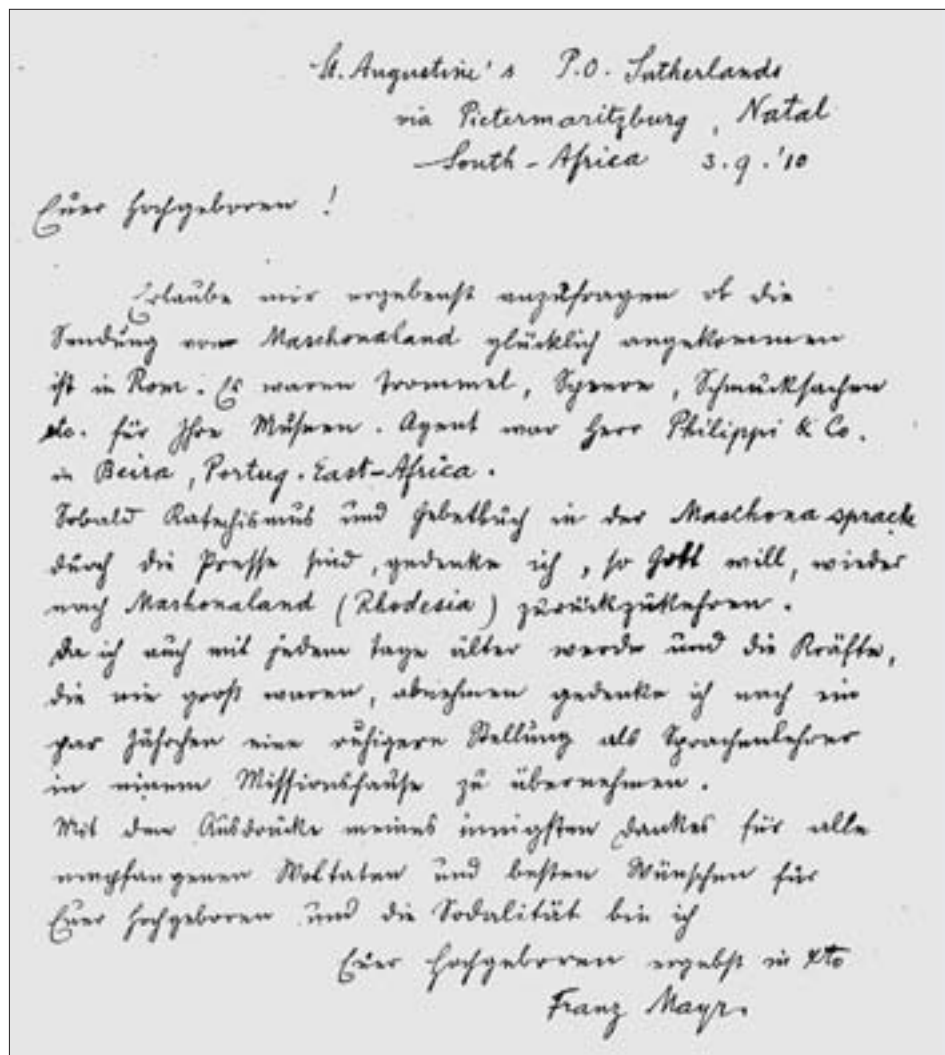 St. Augustine's P.O. Sutherlands
via Pietermaritzburg, Natal
South-Africa 3.9.'10
Euer Hochgeboren!
Erlaube mir ergebenst anzufragen ob die
Sendung vom Maschonaland glücklich angekommen
ist in Rom. Es waren Trommel, Speere, Schmucksachen
etc. für Ihre Museen. Agent war Herr Philippi & Co.
in Beira, Portug. East-Africa.
Sobald Katechismus und Gebetbuch in der Maschona sprache
durch die Presse sind, gedenke ich, so Gott will, wieder
nach Mashonaland (Rhodesia) zurückzukehren.
Da ich auch mit jedem Tage älter werde und die Kräfte,
die nie groß waren, abnehmen gedenke ich nach ein
par Jährchen eine ruhigere Stellung als Sprachenlehrer
in einem Missionshause zu übernehmen.
Mit dem Ausdrucke meines innigsten Dankes für alle
empfangenen Woltaten und besten Wünschen für
Euer Hochgeboren und die Sodalität bin ich
Euer Hochgeboren ergebst in Xto
Franz Mayr.